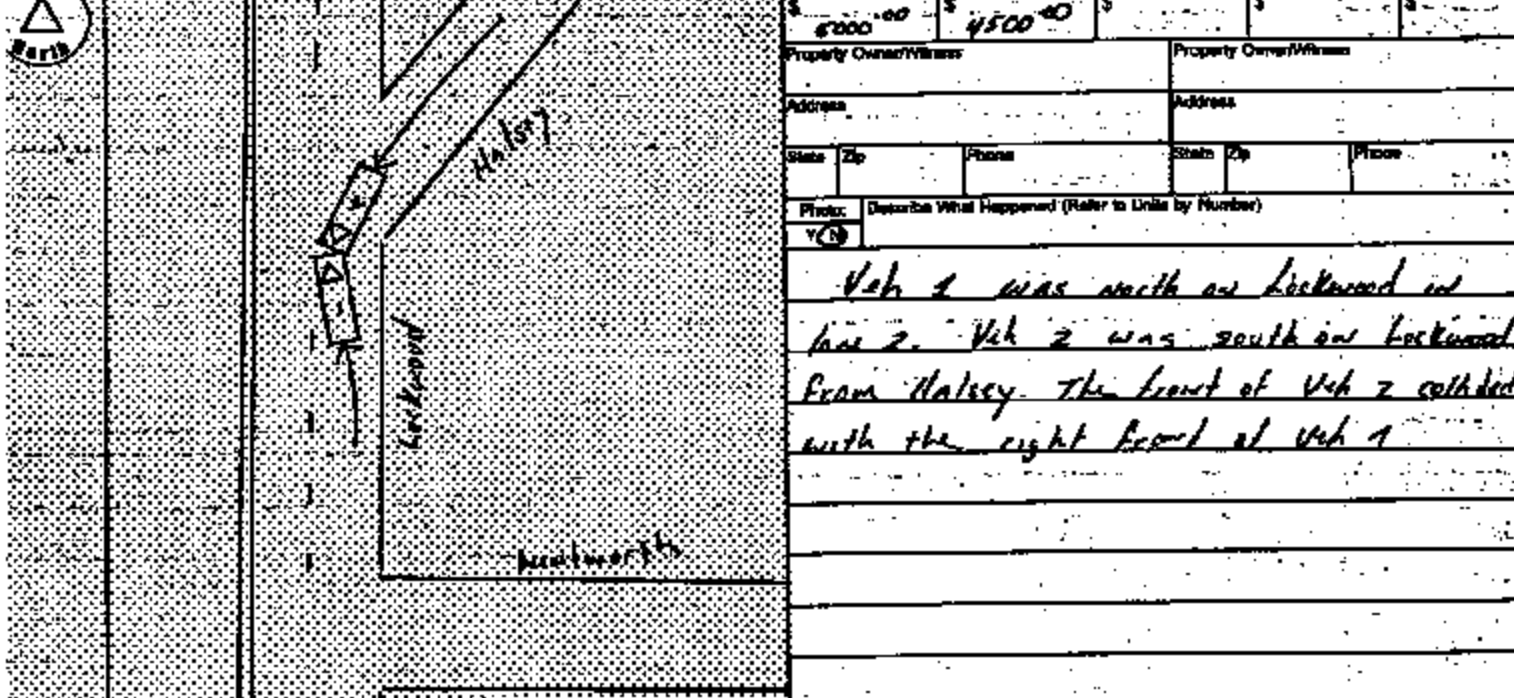 North
Halsey
Lockwood
Wentworth
$ $ $ $ $
5000.00 4500.00
Property Owner/Witness Property Owner/Witness
Address Address
State Zip Phone State Zip Phone
Photo: Describe What Happened (Refer to Units by Number)
Y N
Veh 1 was north on Lockwood in
lane 2. Veh 2 was south on Lockwood
from Halsey. The front of Veh 2 collided
with the right front of Veh 1